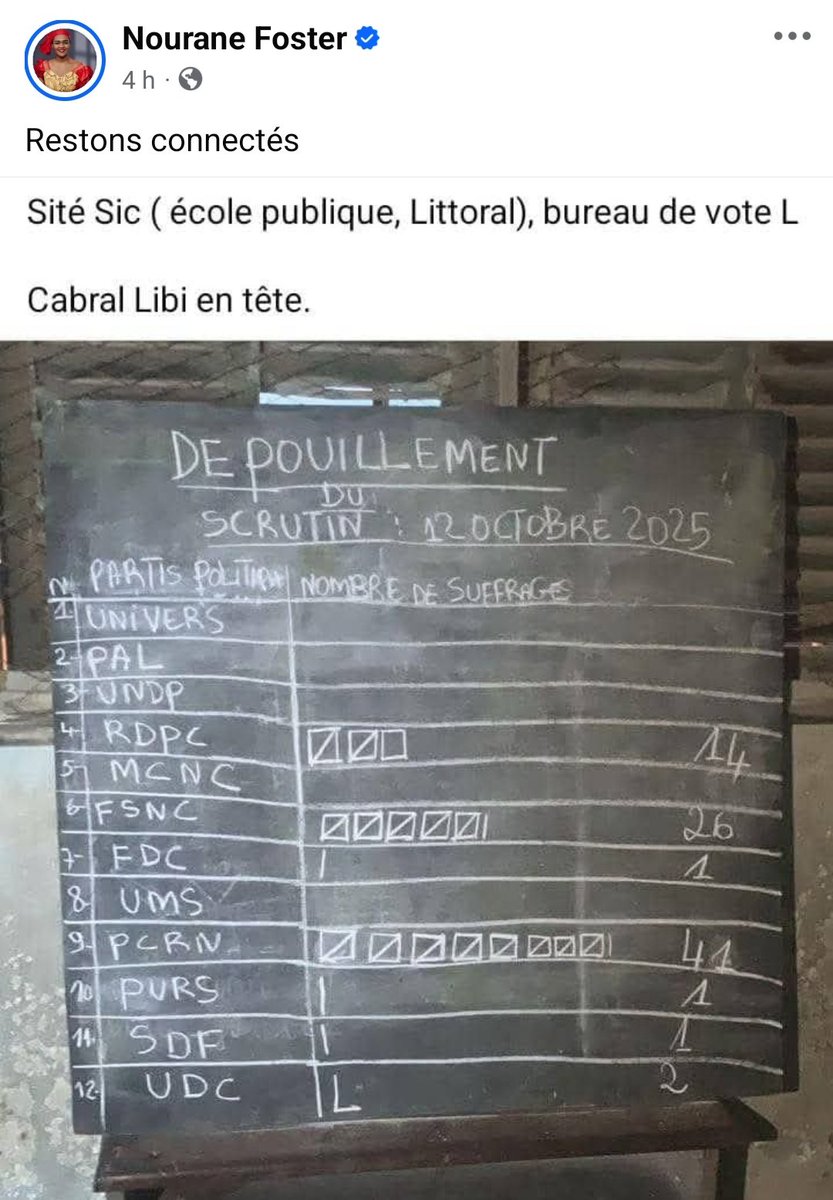 Nourane Foster
4 h ·
Restons connectés
Sité Sic ( école publique, Littoral), bureau de vote L
Cabral Libi en tête.
DEPOUILLEMENT
DU
SCRUTIN : 12 OCTOBRE 2025
N. PARTIS POLITIQU NOMBRE DE SUFFRAGE
1 UNIVERS
2- PAL
3- UNDP
4- RDPC 14
5- MCNC
6- FSNC 26
7- FDC 1
8- UMS
9- PCRN 41
10 PURS 1
11- SDF 1
12- UDC 2